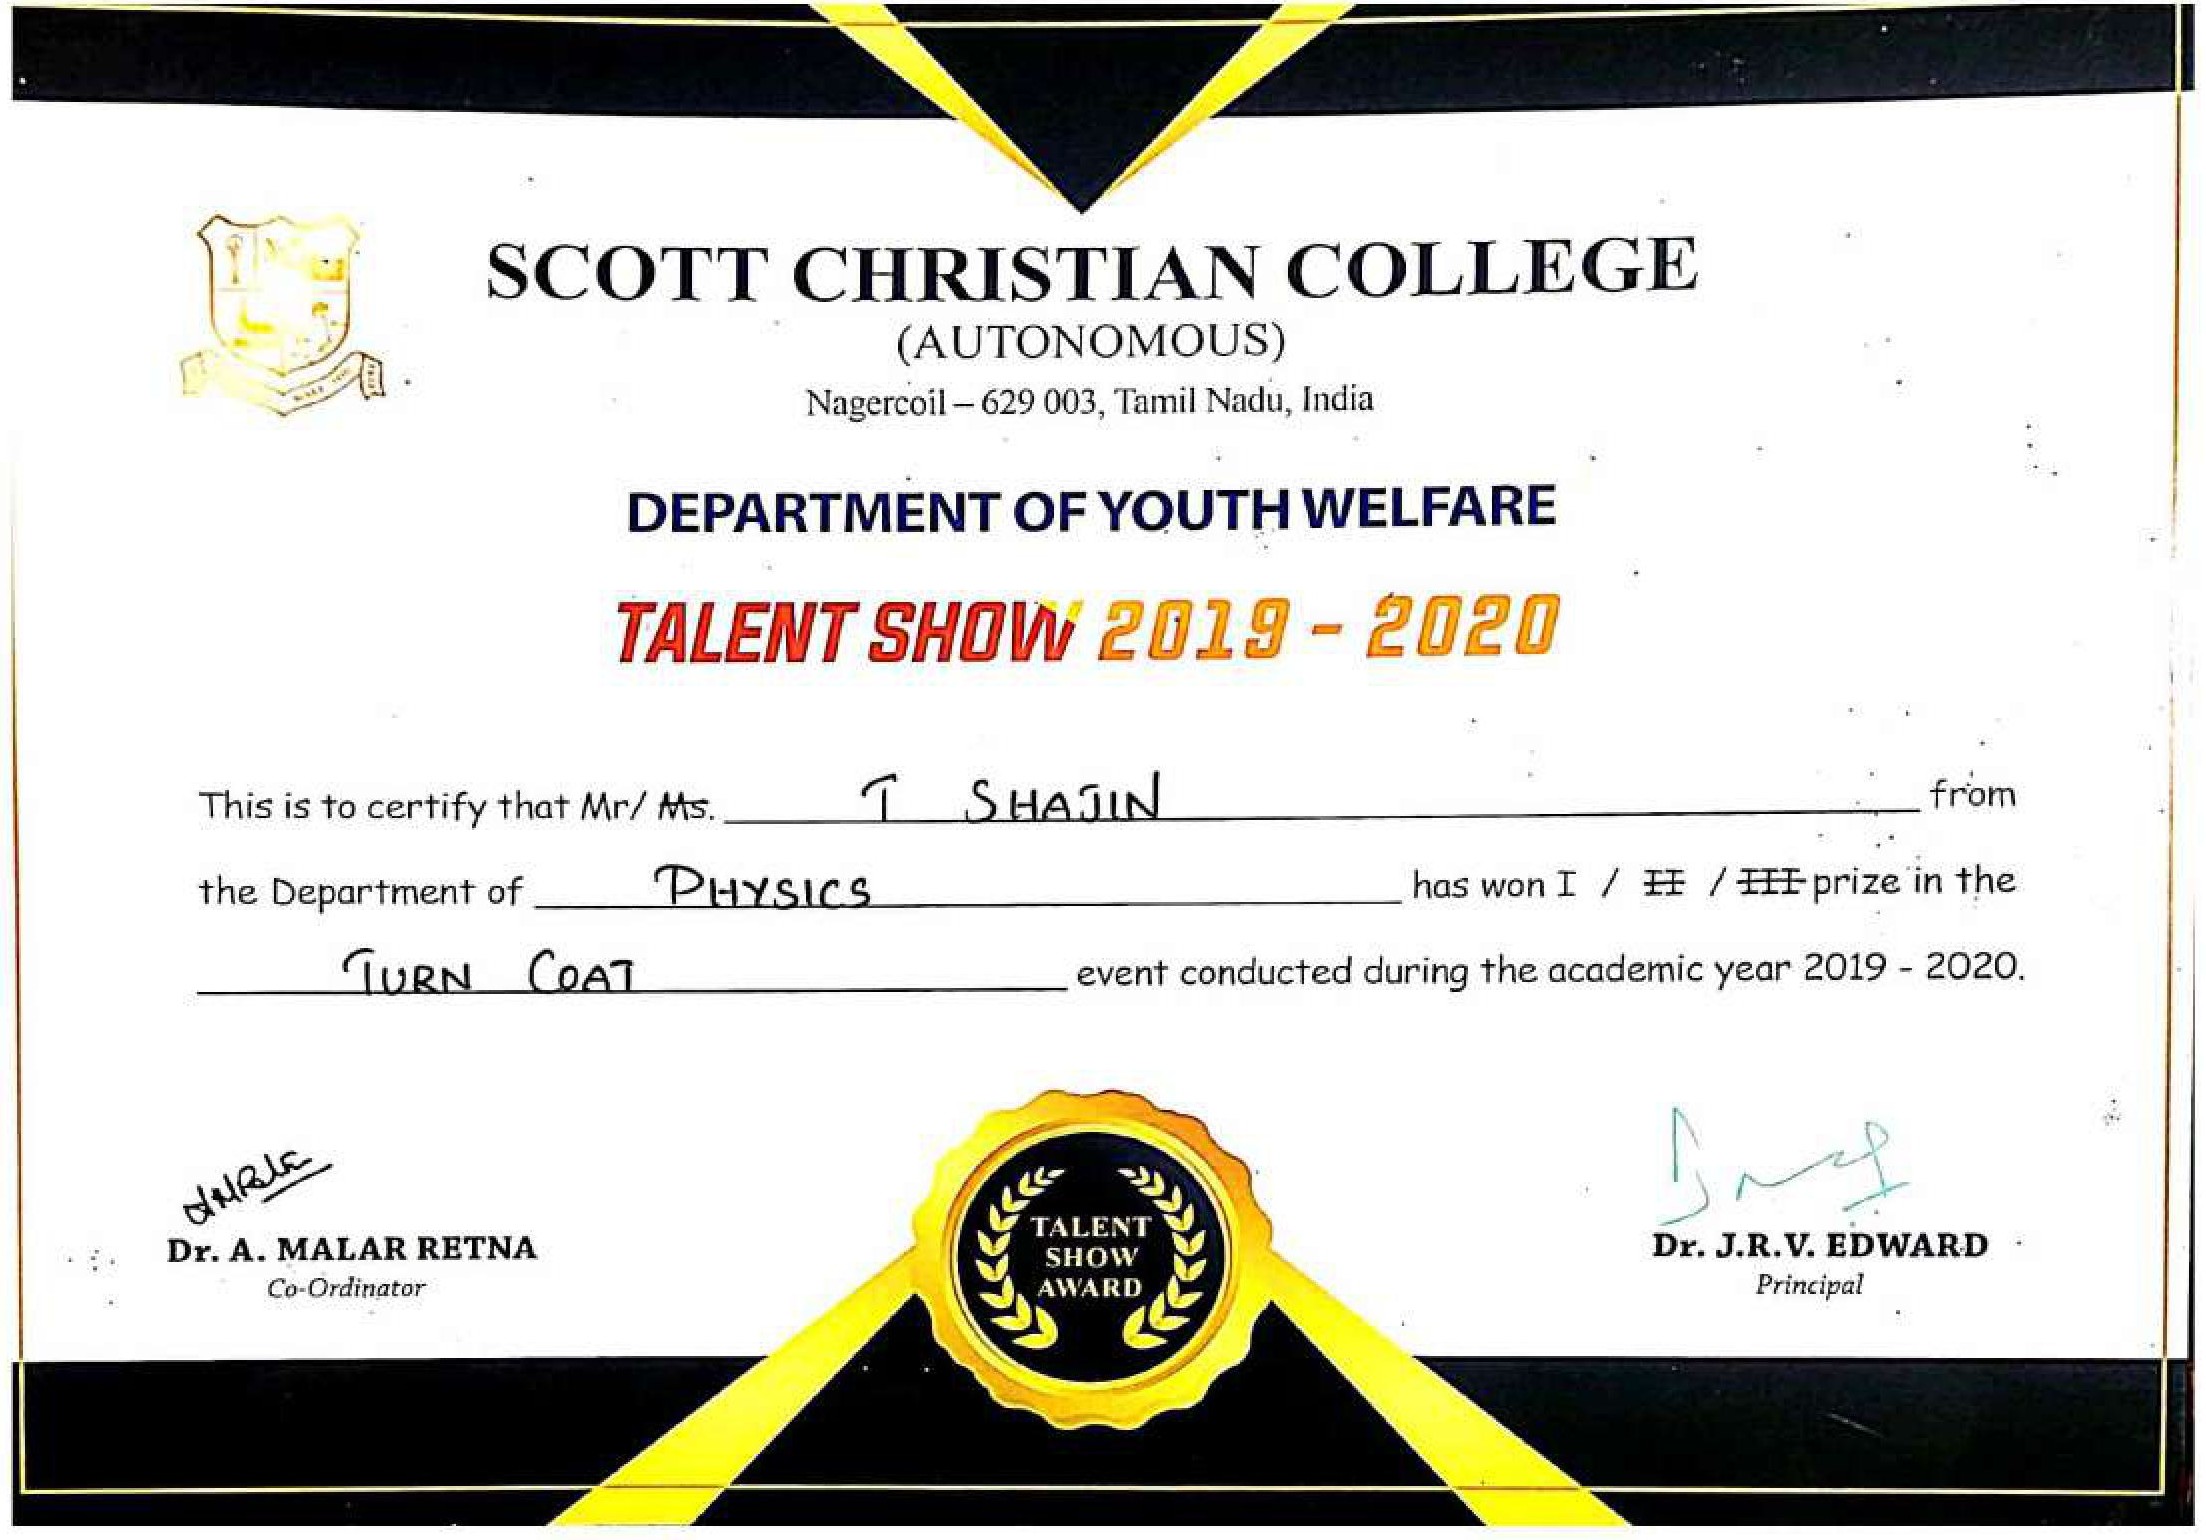 SCOTT CHRISTIAN COLLEGE
(AUTONOMOUS)
Nagercoil – 629 003, Tamil Nadu, India
DEPARTMENT OF YOUTH WELFARE
TALENT SHOW 2019 - 2020
This is to certify that Mr/ Ms. T SHAJIN from
the Department of PHYSICS has won I / II / III prize in the
TURN COAT event conducted during the academic year 2019 - 2020.
TALENT
SHOW
AWARD
Dr. A. MALAR RETNA
Co-Ordinator
Dr. J.R.V. EDWARD
Principal